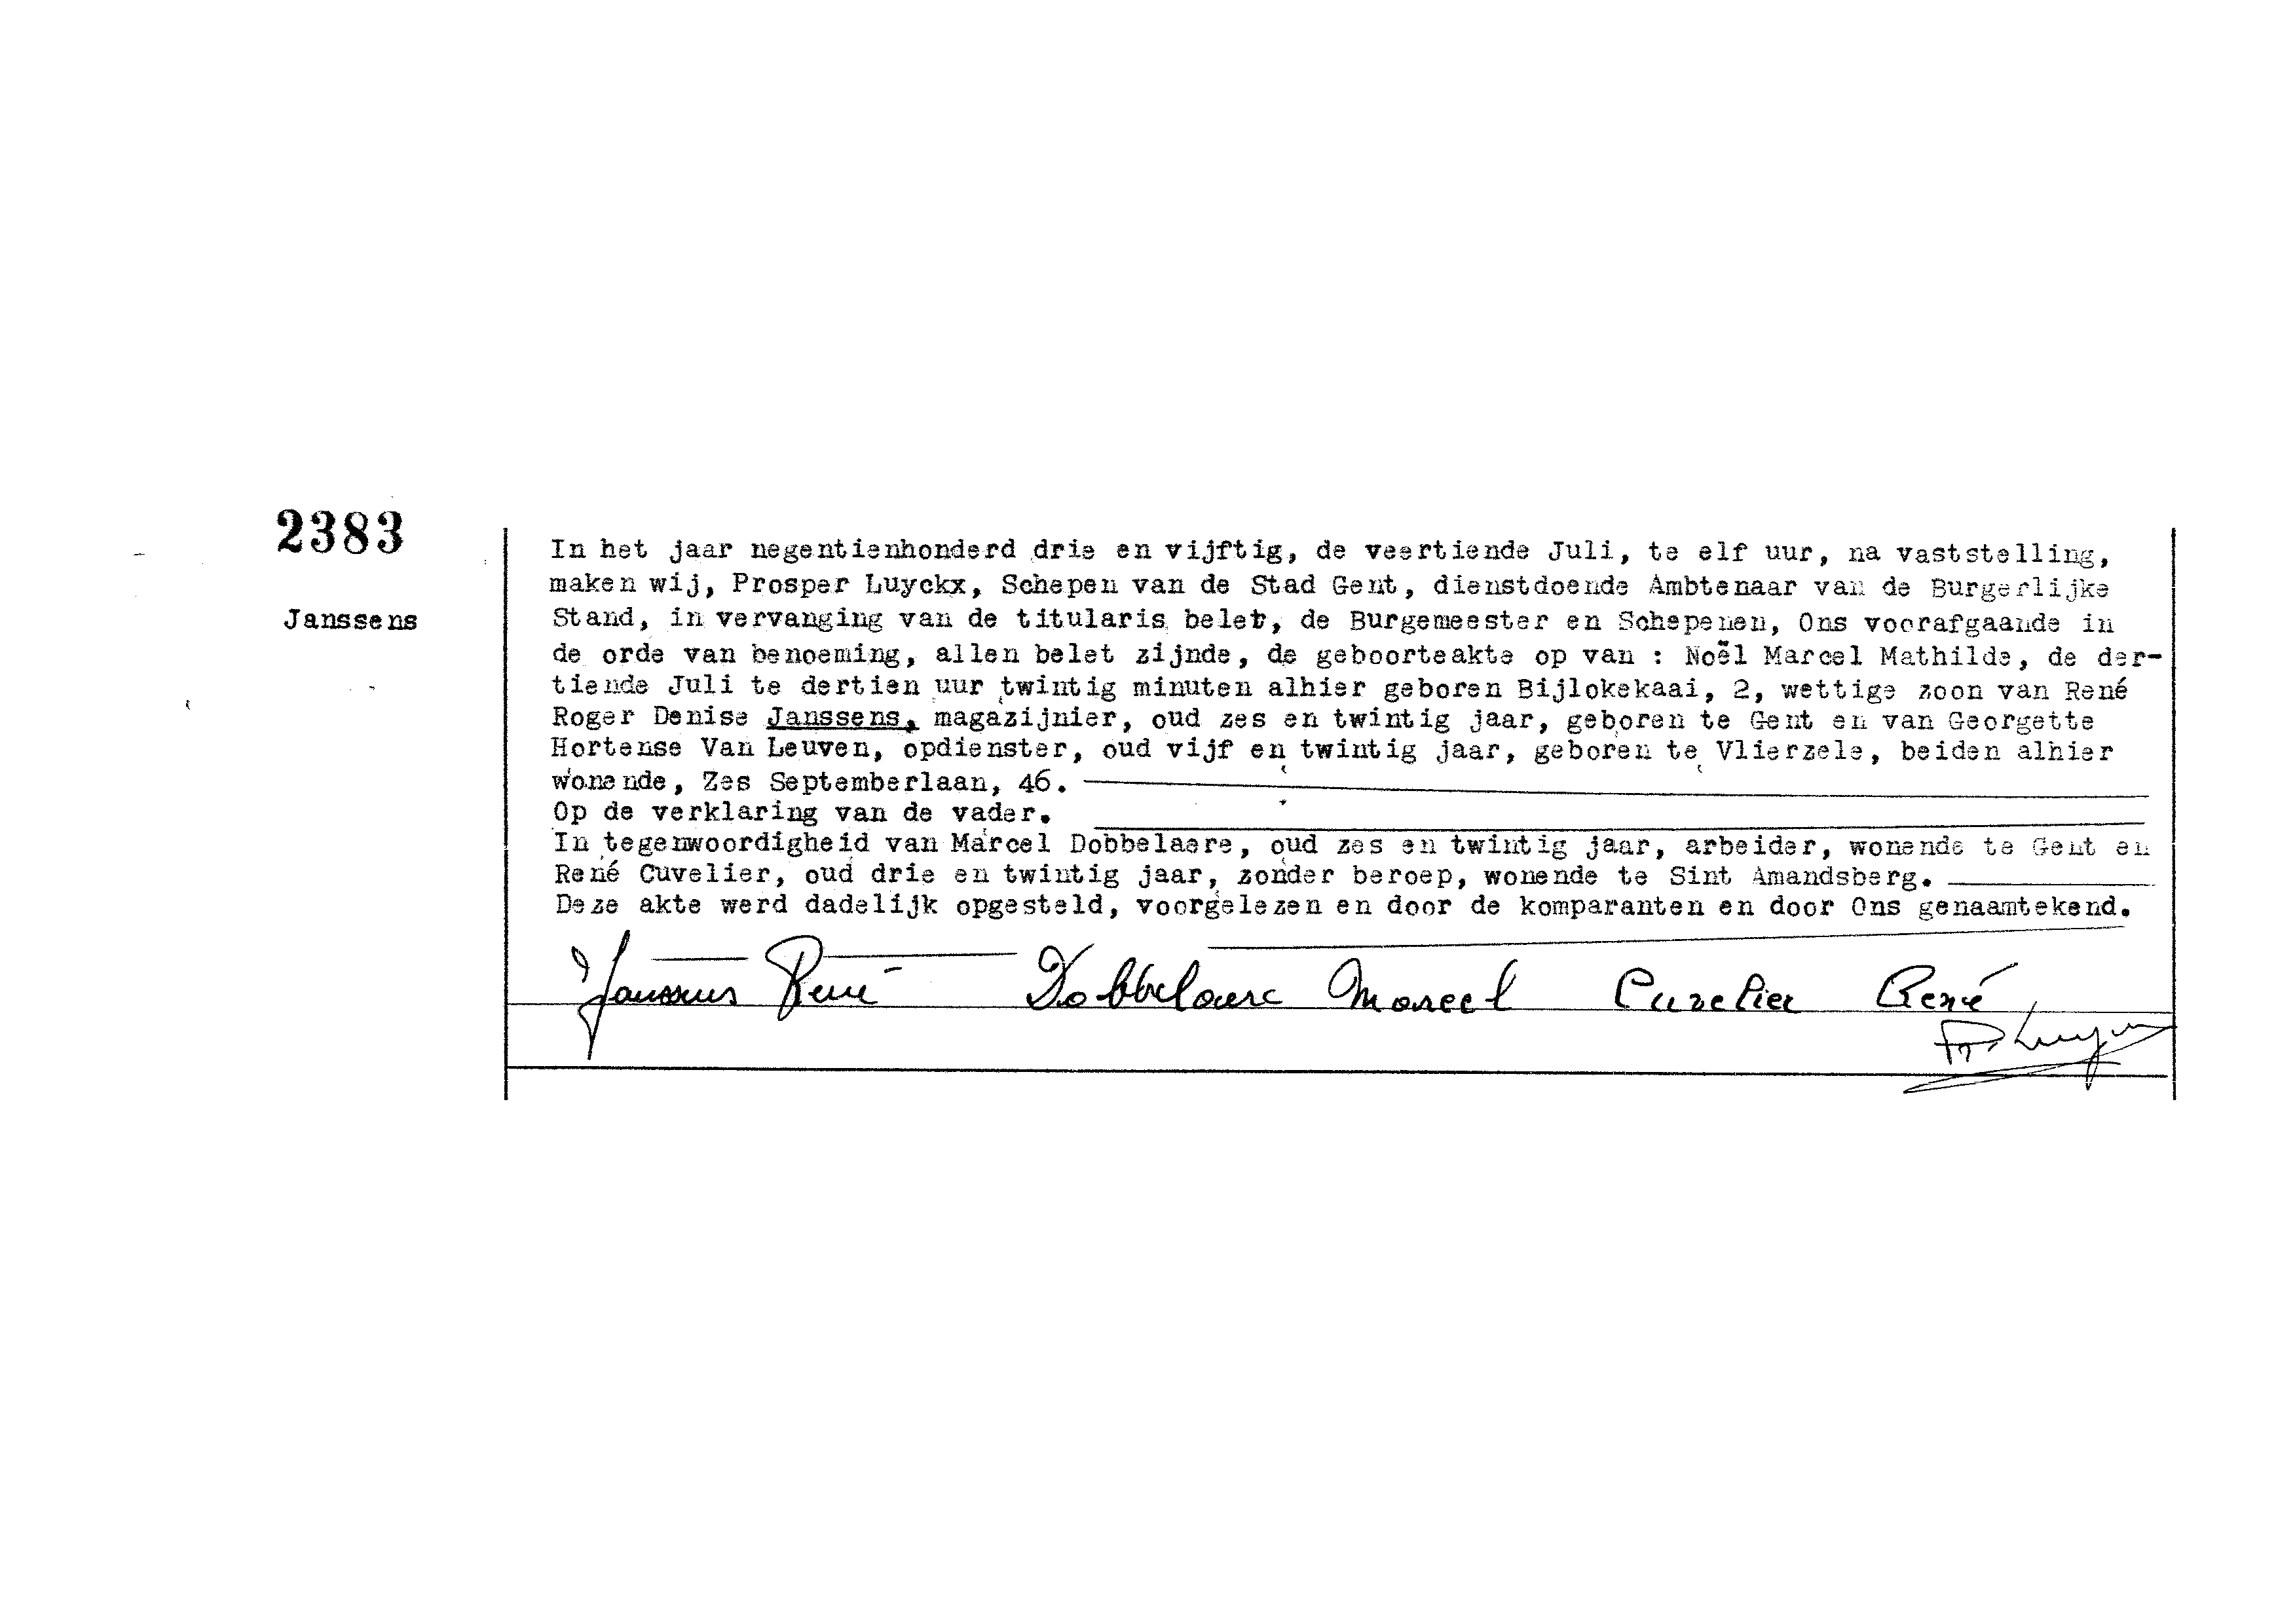 2383
Janssens
In het jaar negentienhonderd drie en vijftig, de veertiende Juli, te elf uur, na vaststelling,
maken wij, Prosper Luyckx, Schepen van de Stad Gent, dienstdoende Ambtenaar van de Burgerlijke
Stand, in vervanging van de titularis belet, de Burgemeester en Schepenen, Ons voorafgaande in
de orde van benoeming, allen belet zijnde, de geboorteakte op van : Noël Marcel Mathilde, de der-
tiende Juli te dertien uur twintig minuten alhier geboren Bijlokekaai, 2, wettige zoon van René
Roger Denise Janssens, magazijnier, oud zes en twintig jaar, geboren te Gent en van Georgette
Hortense Van Leuven, opdienster, oud vijf en twintig jaar, geboren te Vlierzele, beiden alhier
wonende, Zes Septemberlaan, 46.
Op de verklaring van de vader.
In tegenwoordigheid van Marcel Dobbelaere, oud zes en twintig jaar, arbeider, wonende te Gent en
René Cuvelier, oud drie en twintig jaar, zonder beroep, wonende te Sint Amandsberg.
Deze akte werd dadelijk opgesteld, voorgelezen en door de komparanten en door Ons genaamtekend.
Janssens René Dobbelaere Marcel Cuvelier René